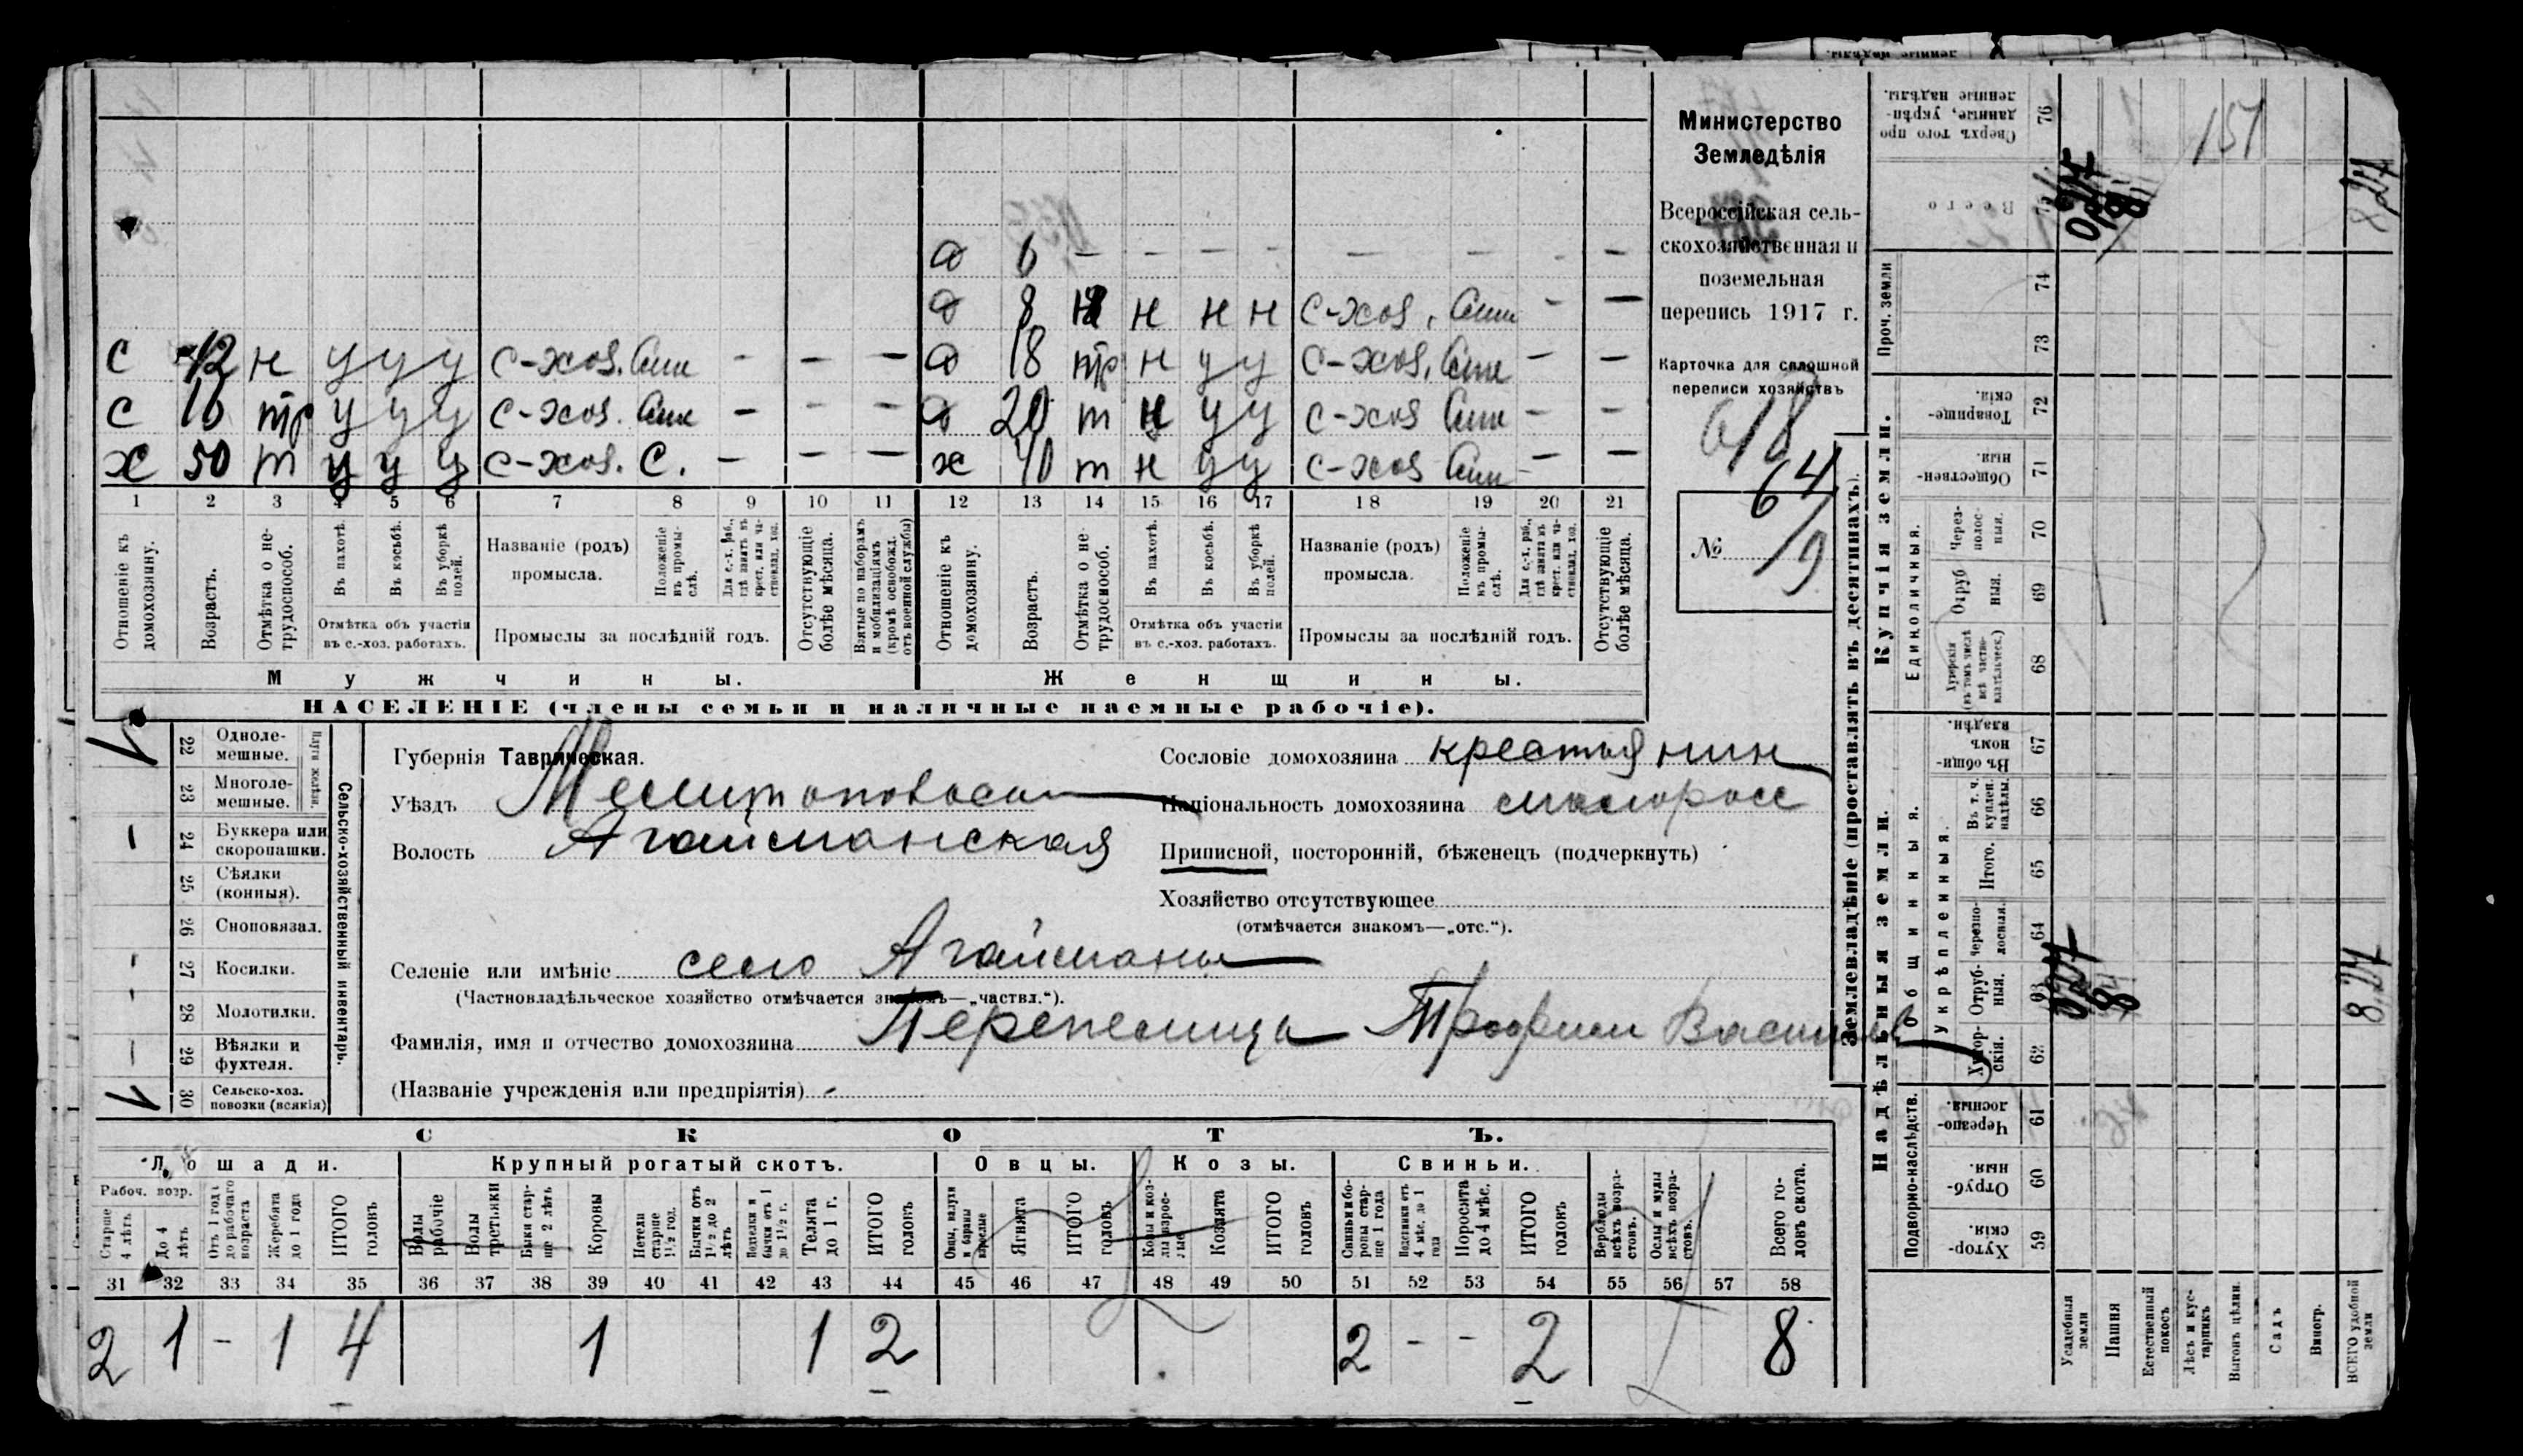 Министерство
Земледѣлія
Всероссійская сель-
скохозяйственная и
поземельная
перепись 1917 г.
Карточка для сплошной
переписи хозяйствъ
618
64
№ 19
д 6 — — — — — — — —
д 8 н н н н с-хоз. — —
д 18 тр н у у с-хоз. — —
д 20 т н у у с-хоз — —
х 40 т н у у с-хоз — —
с 12 н у у у с-хоз. — — —
с 16 тр у у у с-хоз. — — —
х 50 т у у у с-хоз. С. — — —
1 2 3 4 5 6 7 8 9 10 11 12 13 14 15 16 17 18 19 20 21
Отношеніе къ домохозяину.
Возрастъ.
Отмѣтка о не-трудоспособ.
Въ пахотѣ.
Въ косьбѣ.
Въ уборкѣ полей.
Отмѣтка объ участіи
въ с.-хоз. работахъ.
Названіе (родъ)
промысла.
Положеніе въ промы-слѣ.
Для с.-х. раб., гдѣ занятъ въ крест. или ча-стновлад. хоз.
Промыслы за послѣдній годъ.
Отсутствующіе болѣе мѣсяца.
Взятые по наборамъ и мобилизаціямъ (кромѣ освобожд. отъ военной службы)
Отношеніе къ домохозяину.
Возрастъ.
Отмѣтка о не-трудоспособ.
Въ пахотѣ.
Въ косьбѣ.
Въ уборкѣ полей.
Отмѣтка объ участіи
въ с.-хоз. работахъ.
Названіе (родъ)
промысла.
Положеніе въ промы-слѣ.
Для с.-х. раб., гдѣ занята въ крест. или ча-стновлад. хоз.
Промыслы за послѣдній годъ.
Отсутствующіе болѣе мѣсяца.
Мужчины.
Женщины.
НАСЕЛЕНІЕ (члены семьи и наличные наемные рабочіе).
Сельско-хозяйственный инвентарь.
Плуги желѣзн.
22 Одноле-мешные.
23 Многоле-мешные.
24 Буккера или скоропашки.
25 Сѣялки (конныя).
26 Сноповязал.
27 Косилки.
28 Молотилки.
29 Вѣялки и фухтеля.
30 Сельско-хоз. повозки (всякія)
Губернія Таврическая.
Уѣздъ
Волость Агайманская
Селеніе или имѣніе село Агайманы
(Частновладѣльческое хозяйство отмѣчается знакомъ—„частвл.“).
Фамилія, имя и отчество домохозяина Перепелица Трофим Васильев
(Названіе учрежденія или предпріятія) -
Сословіе домохозяина крестьянин
Національность домохозяина малоросс
Приписной, посторонній, бѣженецъ (подчеркнуть)
Хозяйство отсутствующее
(отмѣчается знакомъ—„отс.“).
СКОТЪ.
Лошади.
Крупный рогатый скотъ.
Овцы.
Козы.
Свиньи.
Рабоч. возр.
Старше 4 лѣтъ
До 4 лѣтъ
Отъ 1 года до рабочаго возраста
Жеребята до 1 года
ИТОГО головъ
Волы рабочіе
Волы третьяки
Быки стар-ше 2 лѣтъ
Коровы
Нетели старше 1½ год.
Бычки отъ 1½ до 2 лѣтъ
Телки и бычки отъ 1 до 1½ г.
Телята до 1 г.
ИТОГО головъ
Овцы, валухи и бараны взрослые
Ягнята
ИТОГО головъ
Козы и коз-лы взрос-лые
Козлята
ИТОГО головъ
Свиньи и бо-ровы стар-ше 1 года
Подсвинки отъ 4 мѣс. до 1 года
Поросята до 4 мѣс.
ИТОГО головъ
Верблюды всѣхъ возра-стовъ.
Ослы и мулы всѣхъ возра-стовъ.
Всего го-ловъ скота.
31 32 33 34 35 36 37 38 39 40 41 42 43 44 45 46 47 48 49 50 51 52 53 54 55 56 57 58
2 1 - 1 4 1 1 2 2 - - 2 8
Землевладѣніе (проставлять въ десятинахъ).
Надѣльныя земли.
Купчія земли.
Проч. земли
Подворно-наслѣдств.
Общинныя.
Укрѣпленныя.
Единоличныя.
59 Хутор-скія.
60 Отруб-ныя.
61 Черезпо-лосныя.
62 Хутор-скія.
63 Отруб-ныя.
64 Черезпо-лосная.
65 Итого.
66 Въ т. ч. куплен. надѣлы.
67 Въ общи-номъ владѣн.
68 Хуторскія (въ томъ числѣ всѣ частно-владѣльческ.)
69 Отруб-ныя.
70 Через-полос-ныя.
71 Обществен-ныя.
72 Товарище-скія.
73
74
75 Всего
76 Сверхъ того про-данные, укрѣп-ленные надѣлы.
151
Усадебныя земли
Пашня
Естественный покосъ
Лѣсъ и кус-тарникъ
Выгонъ цѣлин.
Садъ
Виногр.
ВСЕГО удобной земли